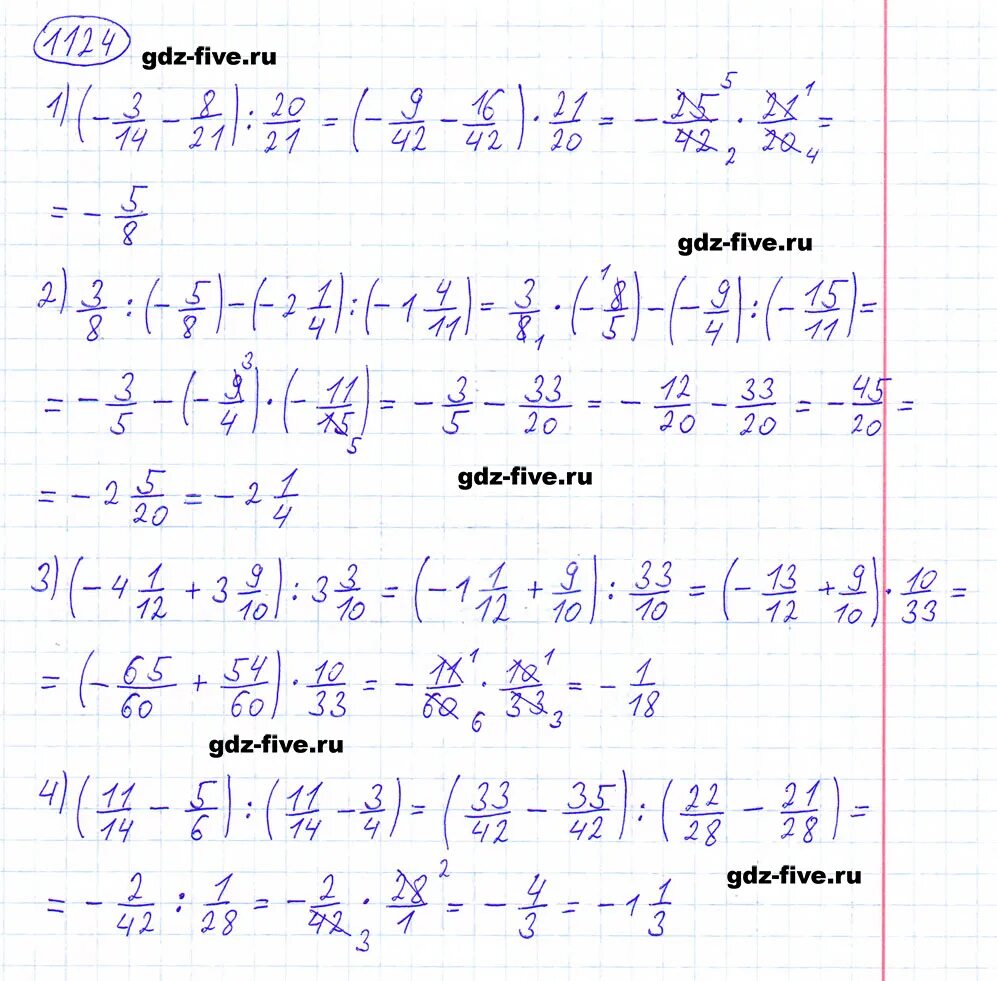 1124
gdz-five.ru
1) (-3/14 - 8/21) : 20/21 = (-9/42 - 16/42) · 21/20 = - 25/42 · 21/20 = 5 2 1 4
= - 5/8
gdz-five.ru
2) 3/8 : (-5/8) - (-2 1/4) : (-1 4/11) = 3/8 · (-8/5) - (-9/4) : (-15/11) = 1 1
= - 3/5 - (-9/4) · (-11/15) = - 3/5 - 33/20 = - 12/20 - 33/20 = - 45/20 = 3 5
= - 2 5/20 = - 2 1/4
gdz-five.ru
3) (-4 1/12 + 3 9/10) : 3 3/10 = (-1 1/12 + 9/10) : 33/10 = (-13/12 + 9/10) · 10/33 =
= (-65/60 + 54/60) · 10/33 = - 11/60 · 10/33 = - 1/18 1 6 1 3
gdz-five.ru
4) (11/14 - 5/6) : (11/14 - 3/4) = (33/42 - 35/42) : (22/28 - 21/28) =
gdz-five.ru
= - 2/42 : 1/28 = - 2/42 · 28/1 = - 4/3 = - 1 1/3 3 2